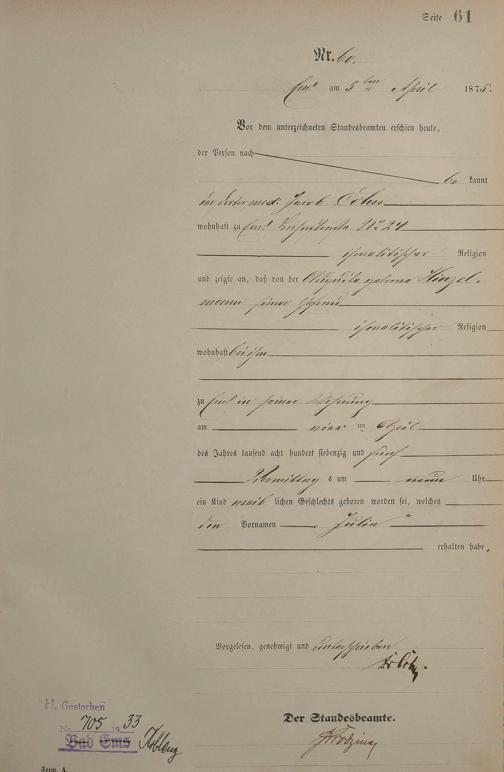 Seite 61
Nr. 60.
Ems am 5ten April 1875.
Vor dem unterzeichneten Standesbeamten erschien heute,
der Person nach
be kannt
Jacob
wohnhaft zu Ems No 24
israelitischer Religion
und zeigte an, daß von der geborene Hinzel-
mann seiner Ehefrau
israelitischer Religion
wohnhaft bei ihm
zu Ems in seiner Wohnung
am vier ten April
des Jahres tausend acht hundert siebenzig und fünf
Vormittag s um neun Uhr
ein Kind weib lichen Geschlechts geboren worden sei, welches
den Vornamen
erhalten habe.
Vorgelesen, genehmigt und unterschrieben
Der Standesbeamte.
H. Gestorben
Nr. 705 1933
Bad Ems Koblenz
Form. A.